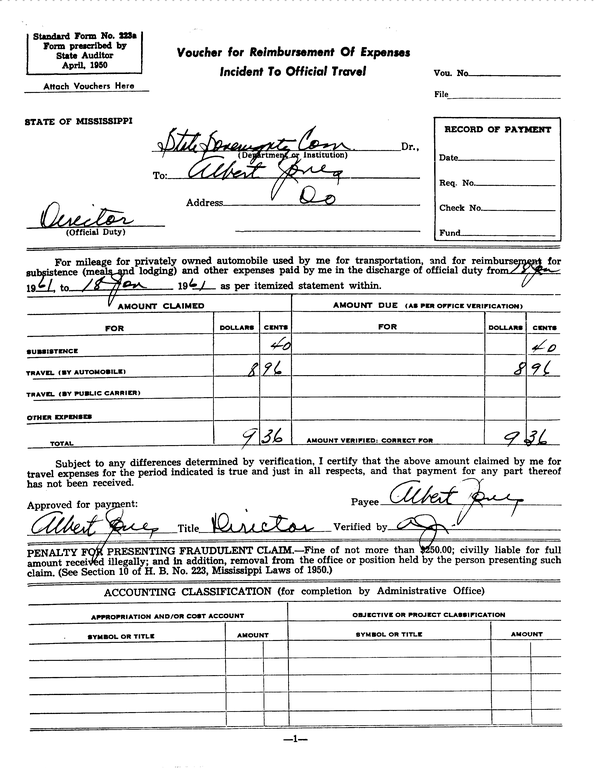 Standard Form No. 223a
Form prescribed by
State Auditor
April, 1950
Attach Vouchers Here
Voucher for Reimbursement Of Expenses
Incident To Official Travel
Vou. No.
File
STATE OF MISSISSIPPI
RECORD OF PAYMENT
Date
Req. No.
Check No.
Fund
State Sovereignty Com Dr.,
(Department or Institution)
To: Albert Jones
Address Do
Director
(Official Duty)
For mileage for privately owned automobile used by me for transportation, and for reimbursement for
subsistence (meals and lodging) and other expenses paid by me in the discharge of official duty from 18 Jan
1961, to 18 Jan 1961 as per itemized statement within.
AMOUNT CLAIMED AMOUNT DUE (AS PER OFFICE VERIFICATION)
FOR DOLLARS CENTS FOR DOLLARS CENTS
SUBSISTENCE 40 40
TRAVEL (BY AUTOMOBILE) 8 96 8 96
TRAVEL (BY PUBLIC CARRIER)
OTHER EXPENSES
TOTAL 9 36 AMOUNT VERIFIED: CORRECT FOR 9 36
Subject to any differences determined by verification, I certify that the above amount claimed by me for
travel expenses for the period indicated is true and just in all respects, and that payment for any part thereof
has not been received.
Payee Albert Jones
Approved for payment:
Albert Jones Title Director Verified by
PENALTY FOR PRESENTING FRAUDULENT CLAIM.—Fine of not more than $250.00; civilly liable for full
amount received illegally; and in addition, removal from the office or position held by the person presenting such
claim. (See Section 10 of H. B. No. 223, Mississippi Laws of 1950.)
ACCOUNTING CLASSIFICATION (for completion by Administrative Office)
APPROPRIATION AND/OR COST ACCOUNT OBJECTIVE OR PROJECT CLASSIFICATION
SYMBOL OR TITLE AMOUNT SYMBOL OR TITLE AMOUNT
—1—